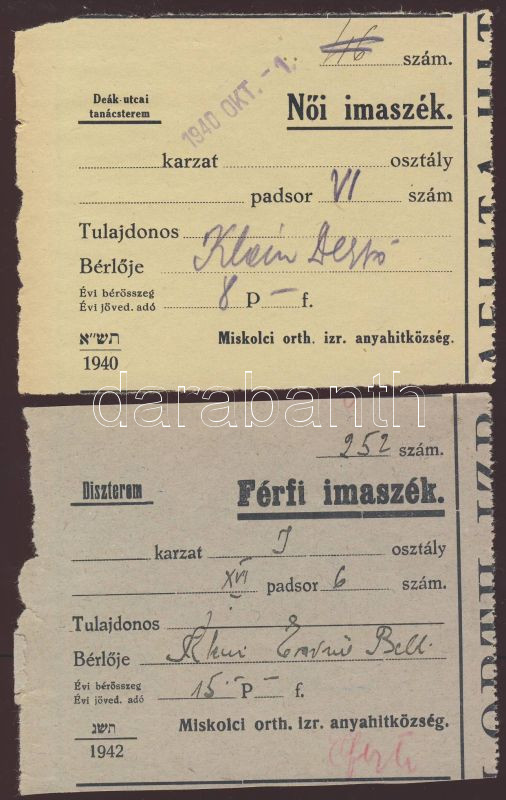 116 szám.
1940 OKT. - 1.
Deák-utcai
tanácsterem
Női imaszék.
karzat osztály
padsor VI szám
Tulajdonos
Klein Dezső
Bérlője
Évi bérösszeg
Évi jöved. adó
8 P — f.
תש״א
1940
Miskolci orth. izr. anyahitközség.
darabanth
252 szám.
Diszterem
Férfi imaszék.
karzat I osztály
XVI padsor 6 szám.
Tulajdonos
Bérlője
Évi bérösszeg
Évi jöved. adó
15 — P — f.
תשג
1942
Miskolci orth. izr. anyahitközség.